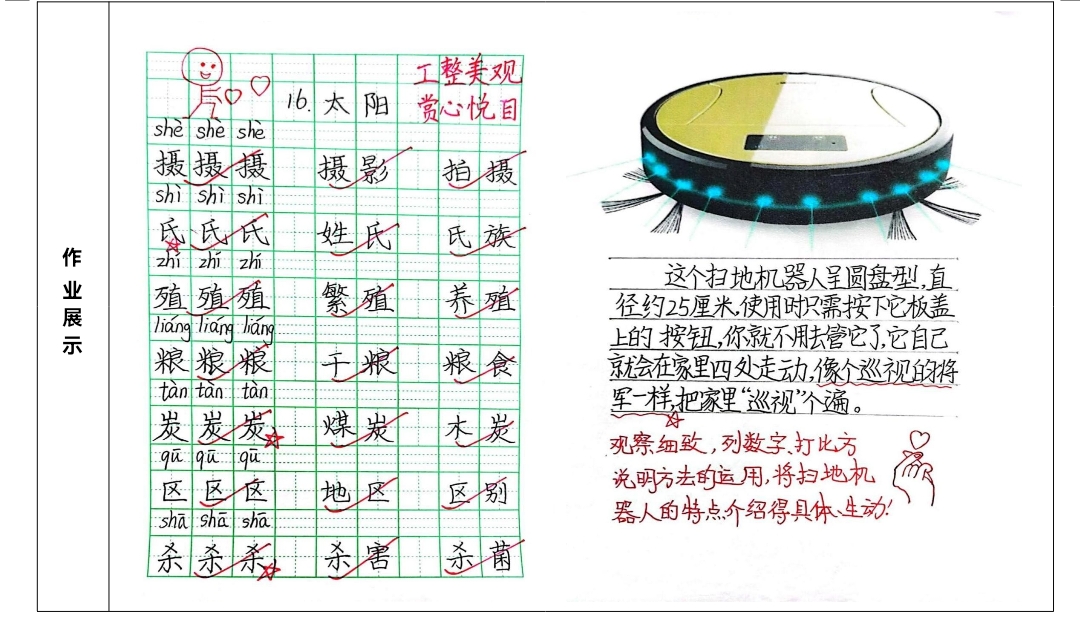 作业展示
工整美观
16. 太阳 赏心悦目
shè shè shè
摄 摄 摄 摄影 拍摄
shì shì shì
氏 氏 氏 姓氏 氏族
zhí zhí zhí
殖 殖 殖 繁殖 养殖
liáng liáng liáng
粮 粮 粮 干粮 粮食
tàn tàn tàn
炭 炭 炭 煤炭 木炭
qū qū qū
区 区 区 地区 区别
shā shā shā
杀 杀 杀 杀害 杀菌
这个扫地机器人呈圆盘型,直
径约25厘米,使用时只需按下它板盖
上的按钮,你就不用去管它了,它自己
就会在家里四处走动,像个巡视的将
军一样,把家里“巡视”个遍。
观察细致,列数字、打比方
说明方法的运用,将扫地机
器人的特点介绍得具体、生动!